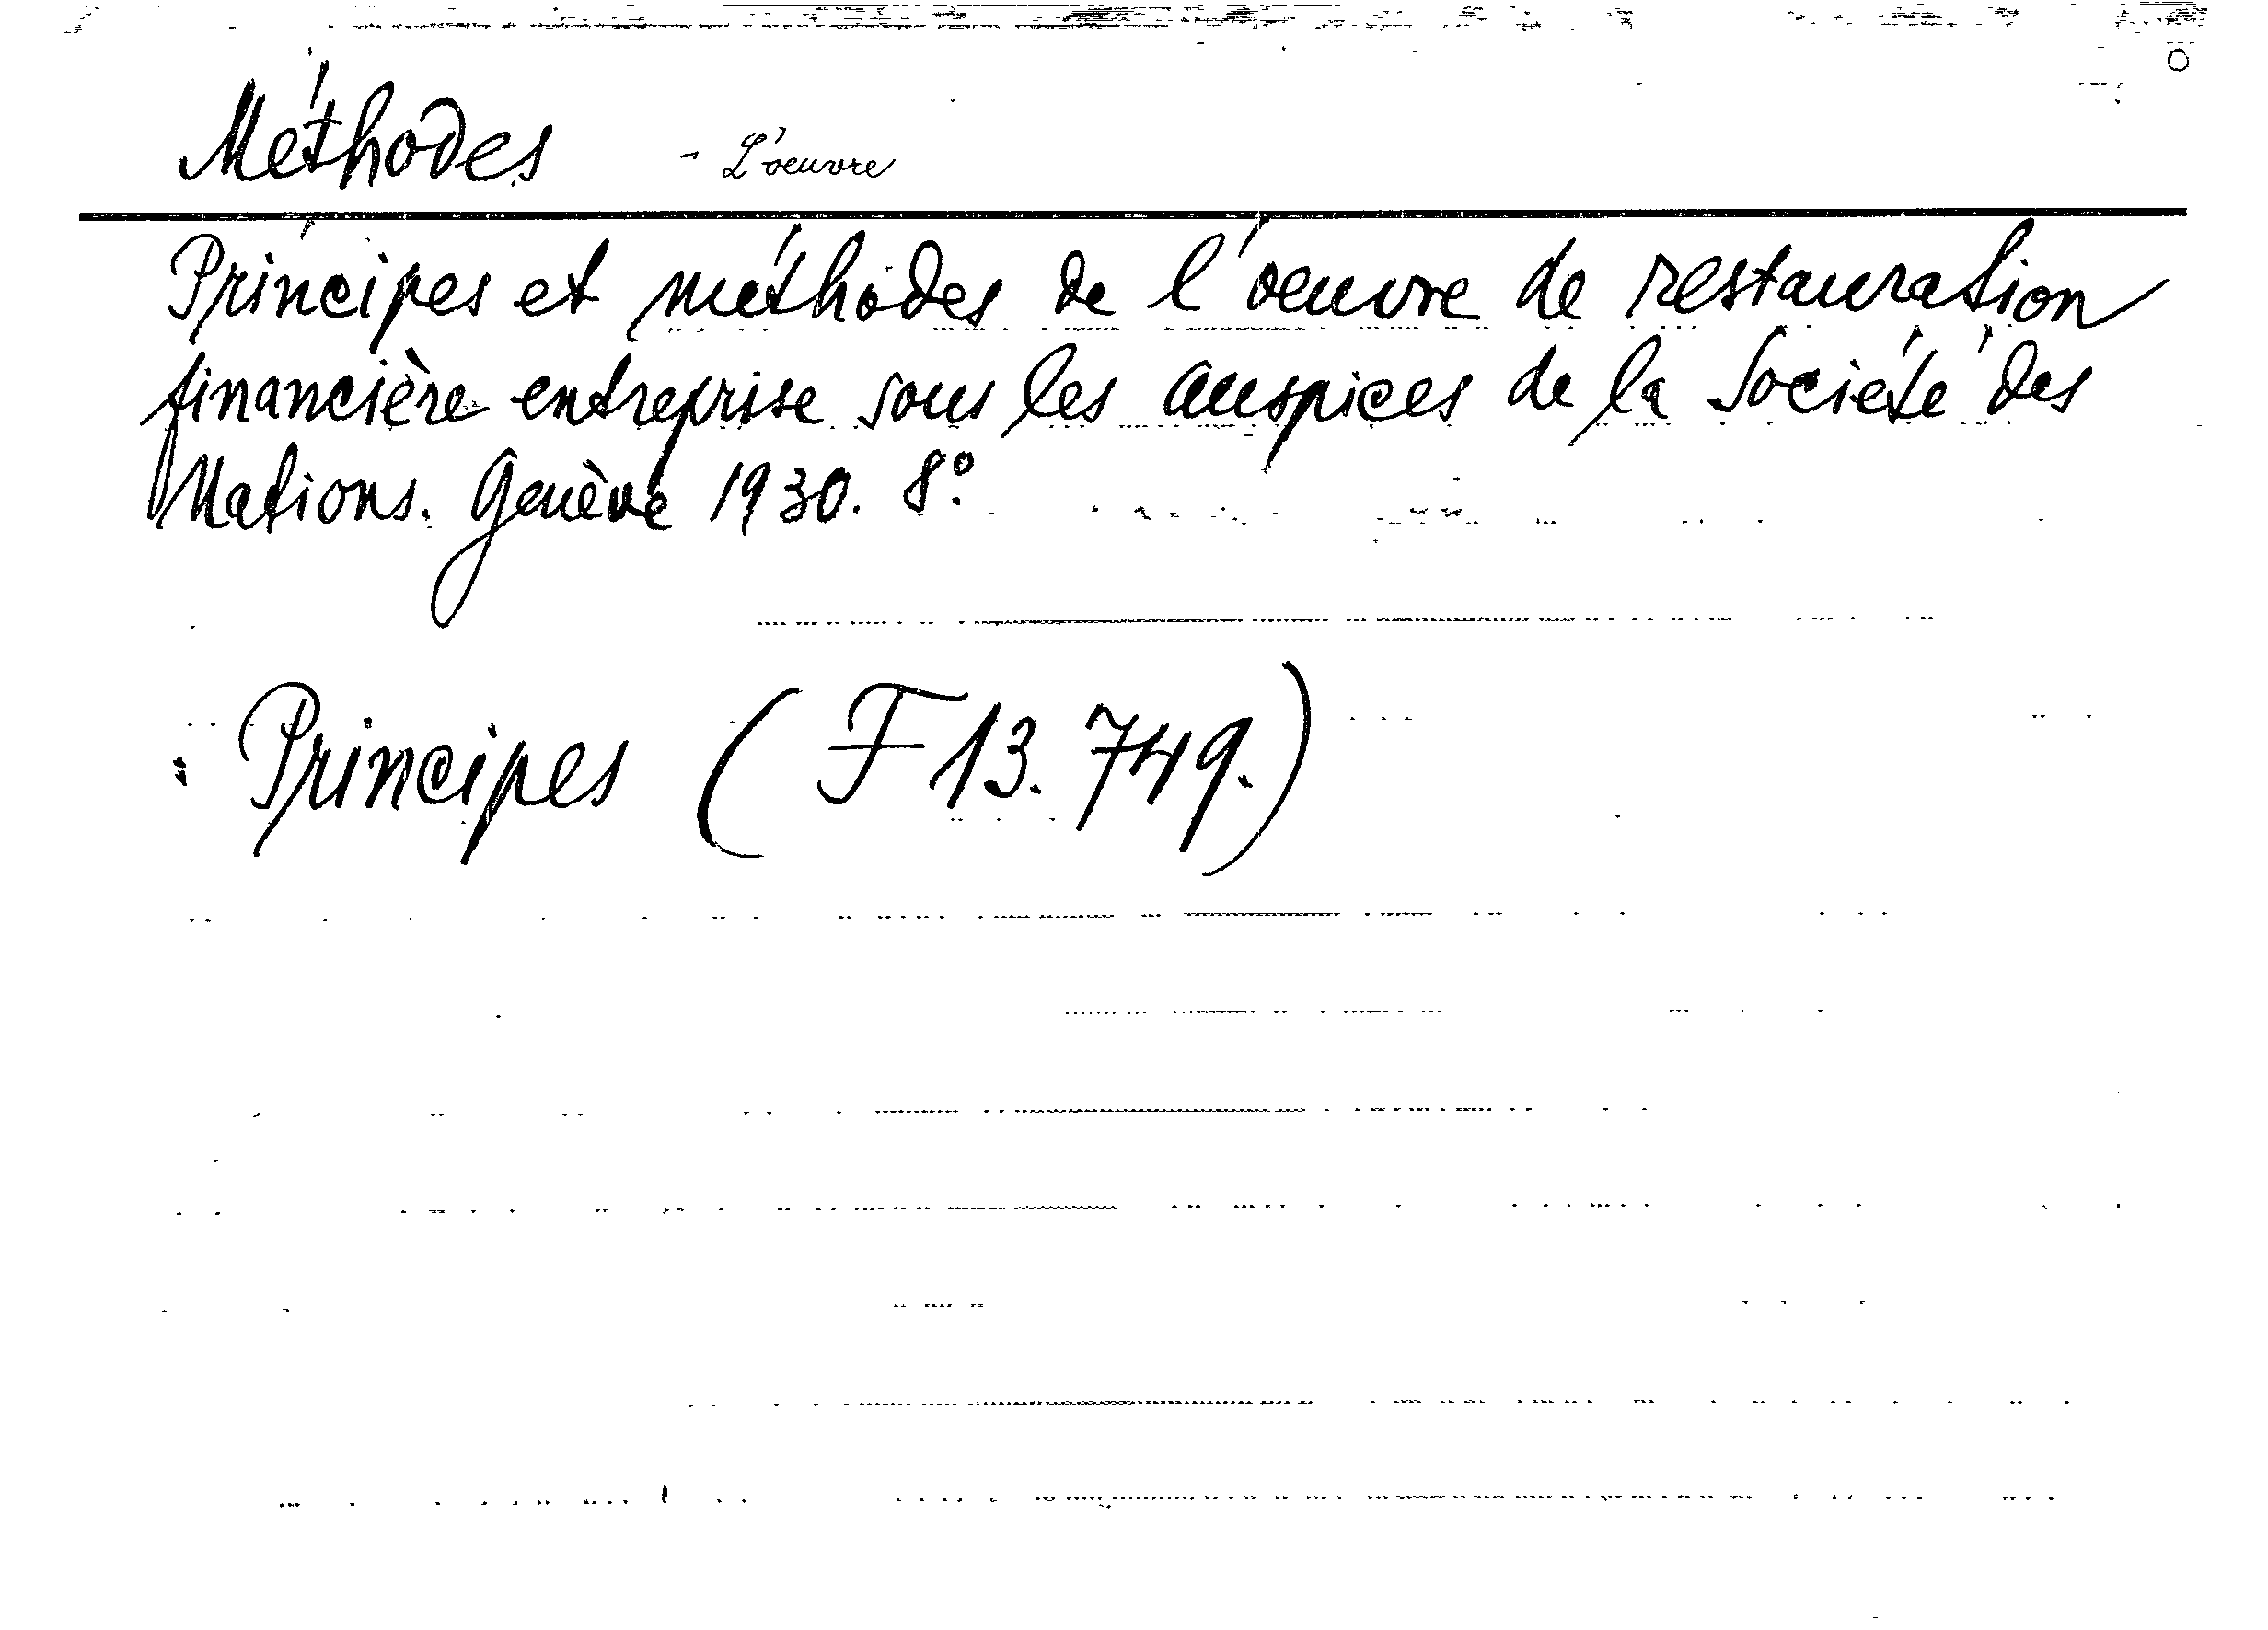 Méthodes - L'oeuvre
Principes et méthodes de l'oeuvre de restauration
financière entreprise sous les auspices de la Société des
Nations. Genève 1930. 8°.
Principes (F 13.749.)